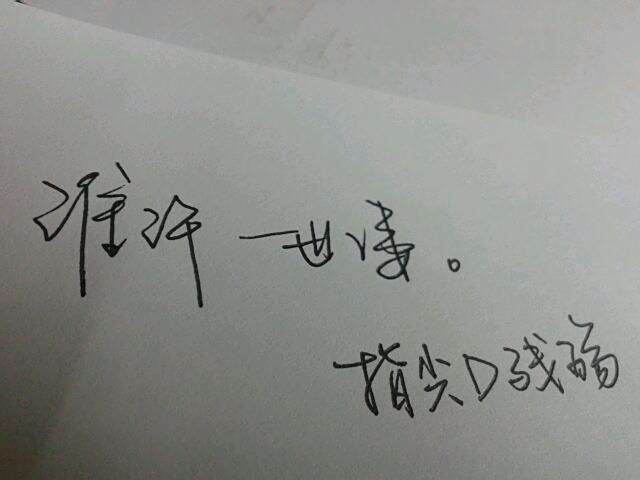 谁许一世凄。
指尖D残殇